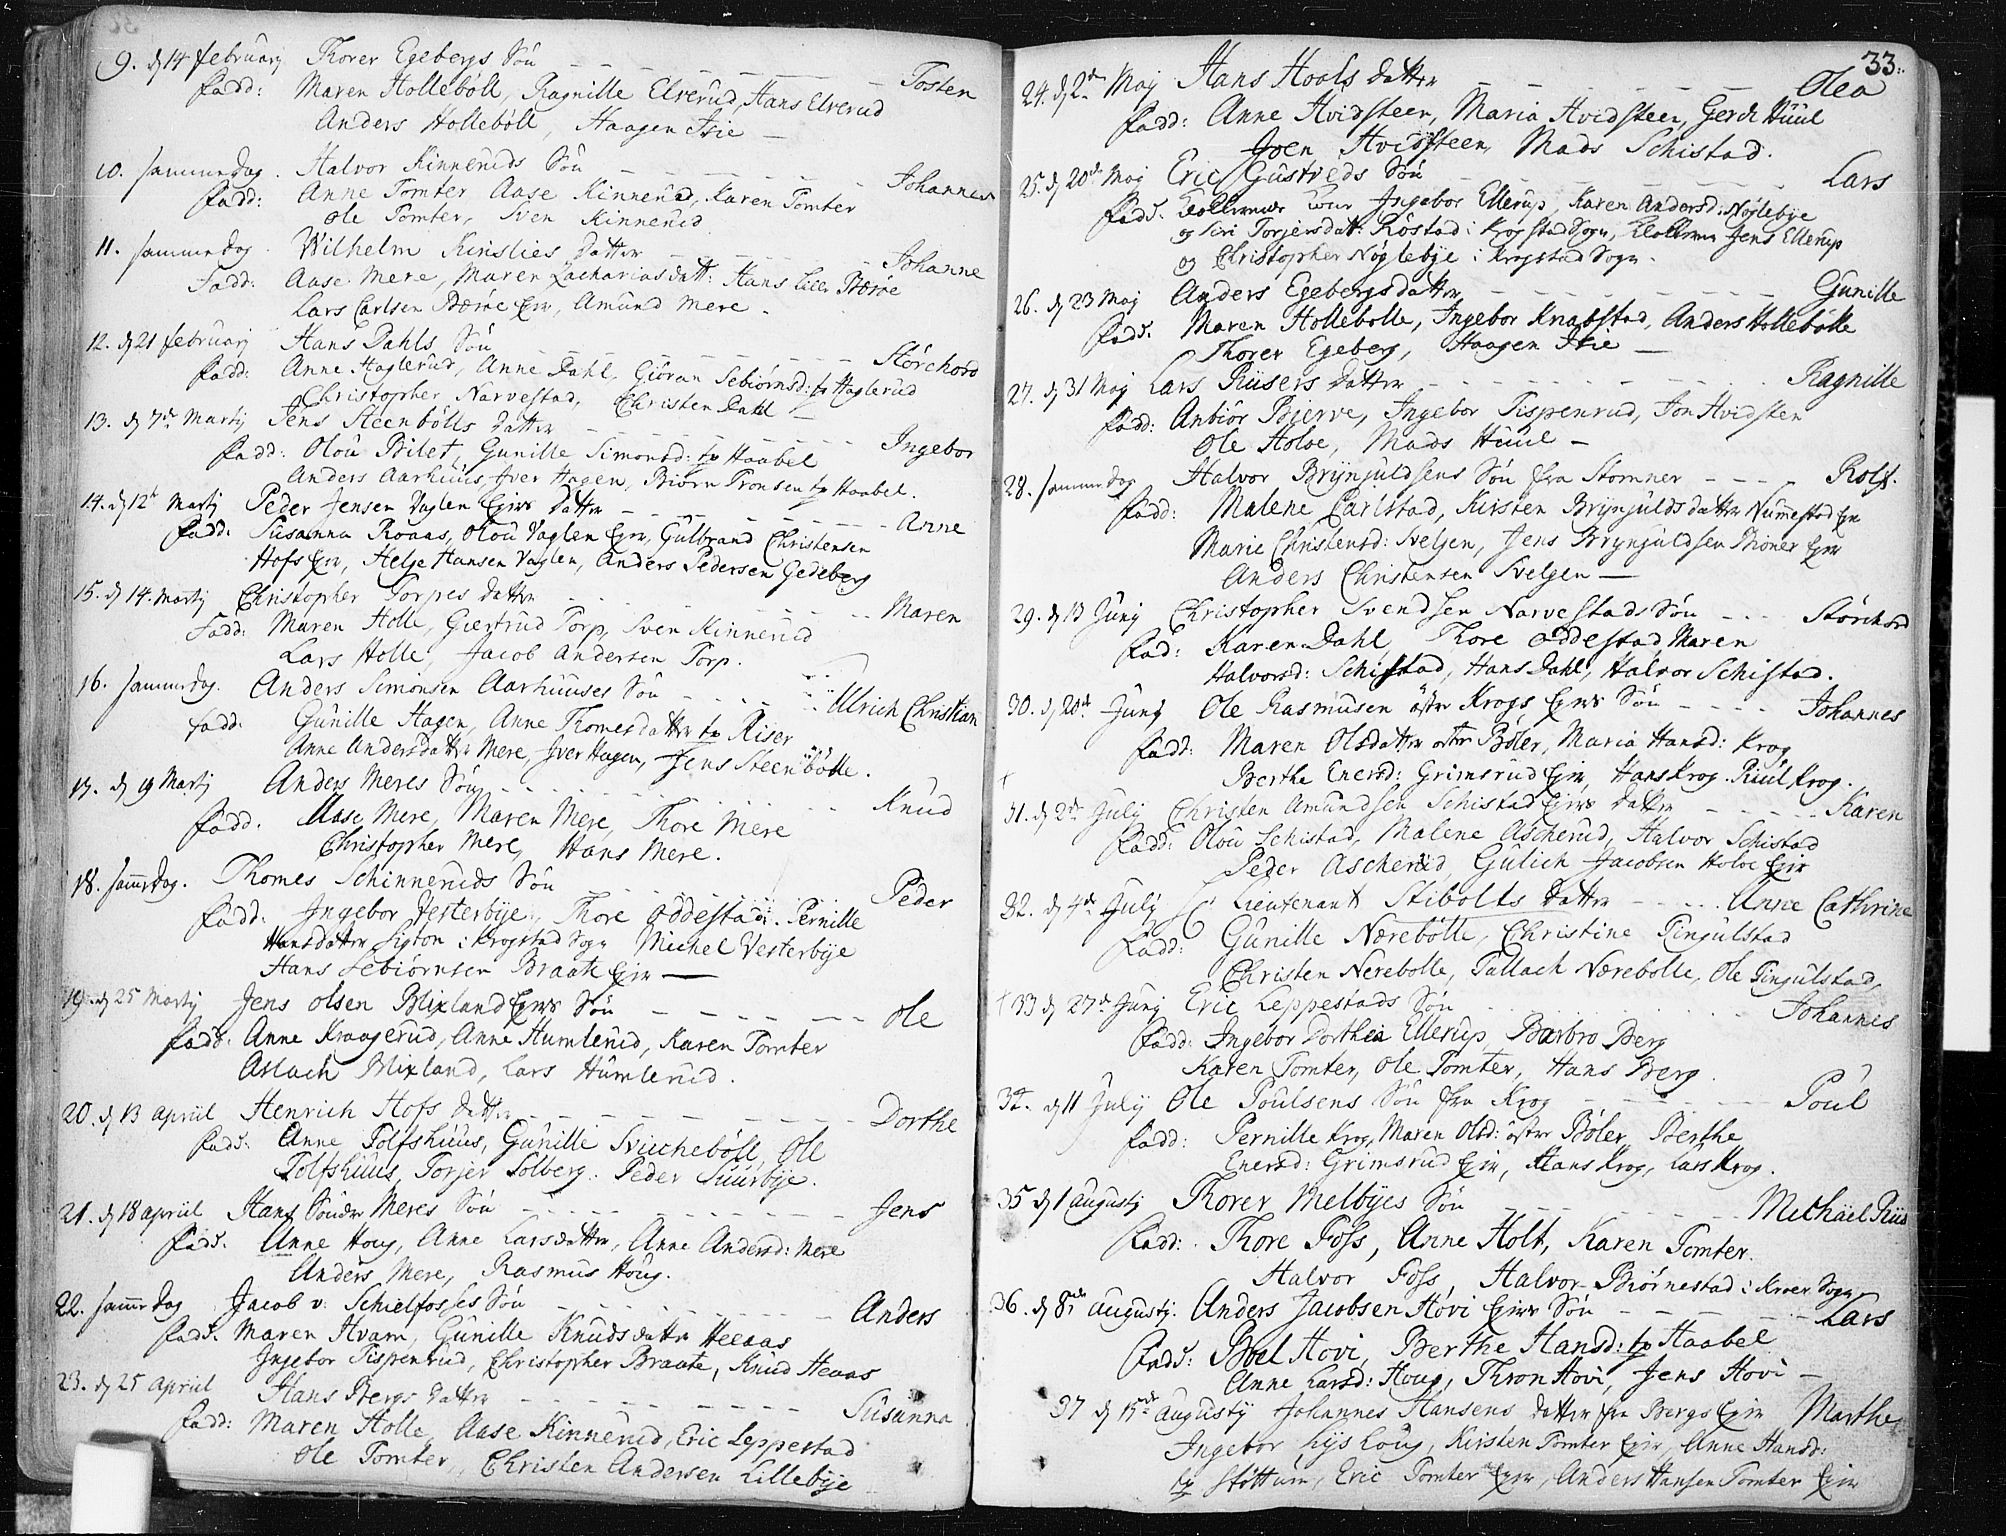 9. d 14 February Thorer Egebergs Søn - - - Tosten
Fadd: Maren Hollebøll, Ragnille Elverud, Hans Elverud
Anders Hollebøll, Haagen Isie
10. sammedag. Halvor Kinneruds Søn - - - Johannes
Fadd: Anne Tomter Aase Kinnerud, Karen Tomter
Ole Tomter, Sven Kinnerud
11. sammedag. Wilhelm Kinslies datter - - - Johanne
Fadd: Aase Mere, Maren Zachariasdatt: Hans
Lars Carlsen Eier, Amund Mere.
12. d 21 February Hans Dahls Søn - - - Størchord
Fadd: Anne Haglerud, Anne Dahl Giøran Sebiørnsd: Haglerud
Christopher Narvestad, Christen Dahl
13. d 7de Martij Jens Steenbølls datter - - - Ingebor
Fadd: Olou Bilet, Gunille Simonsd: Haabel
Anders Aarhuus, Iver Hagen, Biørn Tronsen Haabel.
14. d 12te Martij Peder Jensen Vaglen Eiers datter - - - Anne
Fadd: Susanna Roaas, Olou Vaglen Eier, Gulbrand Christensen
Hofs Eier, Helge Hansen Vaglen, Anders Pedersen Gedeberg
15. d 14. Martij Christopher Torpes datter - - - Maren
Fadd: Maren Holle, Giertrud Torp, Sven Kinnerud
Lars Holle, Jacob Andersen Torp.
16. sammedag. Anders Simonsen Aarhuuses Søn - - - Ullrich Christian
Fadd: Gunille Hagen, Anne Thomesdatter Riser
Anne Andersdatter Mere, Iver Hagen, Jens Steenbølle.
17. d 19 Martij Anders Meres Søn - - - Knud
Fadd. Aase Mere, Maren Mere, Thore Mere
Christopher Mere, Hans Mere.
18. sammedag. Thomes Schinneruds Søn - - - Peder
Fadd. Ingebor Vesterbye, Thore Oddestad. Pernille
Hansdatter Sigton i Krogstad Sogn Michel Vesterbye
Hans Sebiørnsen Braate Eier
19. d 25 Martij Jens Olsen Blixland Eiers Søn - - - Ole
Fadd. Anne Kraagerud, Anne Humlerud, Karen Tomter
Aslach Blixland, Lars Humlerud.
20. d 13 Apriil Henrich Hofs datter - - - Dorthe
Fadd: Anne Tolfshuus, Gunille Svichebøll, Ole
Tolfshuus, Torjer Solberg. Peder Suurbye.
21. d 18 Apriil Hans Søndre Meres Søn - - - Jens
Fadd. Anne Houg, Anne Larsdatter, Anne Andersd: Mere
Anders Mere, Rasmus Houg.
22. samme dag Jacob v: Schielfosses Søn - - - Anders
Fadd. Maren Hvam, Gunille Knudsdatter Heeaas
Ingebor Tispenrud, Christopher Braate, Knud Heaas
23. d 25 Apriil Hans Bergs datter - - - Susanna
Fadd: Maren Holle, Aase Kinnerud, Eric Leppestad
Ole Tomter, Christen Andersen Lillebye
33.
24. d 2de Maj Hans Hoels datter - - - Olea
Fadd: Anne Hvidsteen, Maria Hvidsteen, Gerdt Huul
Joen Hvidsteen, Mads Schistad.
25. d 20de Maj Eric Gustveds Søn - - - Lars
Fadd. Ingebor Ellerup, Karen Andersd: Nøglebye
og Siri Torjersdatt: Røstad i Krogstad Sogn, Jens Ellerup
og Christopher Nøglebye i Krogstad Sogn.
26. d 23 Maj Anders Egebergs datter - - - Gunille
Fadd. Maren Hollebølle, Ingebor Knabstad, Anders Hollebølle
Thorer Egeberg, Haagen Isie
27. d 31 Maj Lars Riisers datter - - - Ragnille
Fadd: Anbiør Bierve, Ingebor Tispenrud, Jon Hvidsten
Ole Holve, Mads Huul
28. samme dag Halvor Brynjuldsens Søn fra Stomner - - - Rolf.
Fadd: Malene Carlstad, Kirsten Brynjuldsdatter Nummestad Eier
Marie Christensd: Svelgen, Jens Brynjuldsen Eier
Anders Christensen Svelgen
29. d 13 Junij Christopher Svendsen Narvestads Søn - - - Størchord
Fad: Karen Dahl, Thore Oddestad, Maren
Halvorsd: Schistad, Hans Dahl, Halvor Schistad.
30. d 20de Junij Ole Rasmusen østre Krogs Eiers Søn - - - Johannes
Fadd: Maren Olsdatter østre Bøler, Maria Hansd: Krog
Berthe Enersd: Grimsrud Eier, Hans Krog. Poul Krog.
31. d 2de Julij Christen Amundsen Schistad Eiers datter - - - Karen
Fadd: Olou Schistad, Malene Ascherud, Halvor Schistad
Peder Ascherud, Gulich Jacobsen Holve Eier
32. d 4de Julij Lieutenant Stibolts datter - - - Anne Cathrine
Fadd: Gunille Nærebølle, Christine Ringulstad
Christen Nerebølle, Tallach Nærebølle, Ole Ringulstad,
† 33 d 27de Junij Eric Leppestads Søn - - - Johannes
Fadd: Ingebor Dorthea Ellerup, Barbro Berg
Karen Tomter, Ole Tomter, Hans Berg.
34. d 11 Julij Ole Poulsens Søn fra Krog - - - Poul
Fadd: Pernille Krog, Maren Olsd: østre Bøler, Berthe
Enersd: Grimsrud Eier, Hans Krog, Lars Krog.
35 d 1 Augustij Thorer Melbyes Søn - - - Michael Riis
Fadd: Thore Foss, Anne Holt, Karen Tomter.
Halvor Foss, Halvor Biørnestad i Kroer Sogn
36. d 8de Augustij. Anders Jacobsen Hovi Eiers Søn - - - Lars
Fadd: Boel Hovi, Berthe Hansd: Haabel
Anne Larsd: Houg, Thron Hovi, Jens Hovi
37 d 15de Augustij Johannes Hansens datter fra Bergs Eier Marthe
Ingebor Lysloug, Kirsten Tomter Eier, Anne Hansd:
Støttum, Eric Tomter Eier, Anders Hansen Tomter Eier